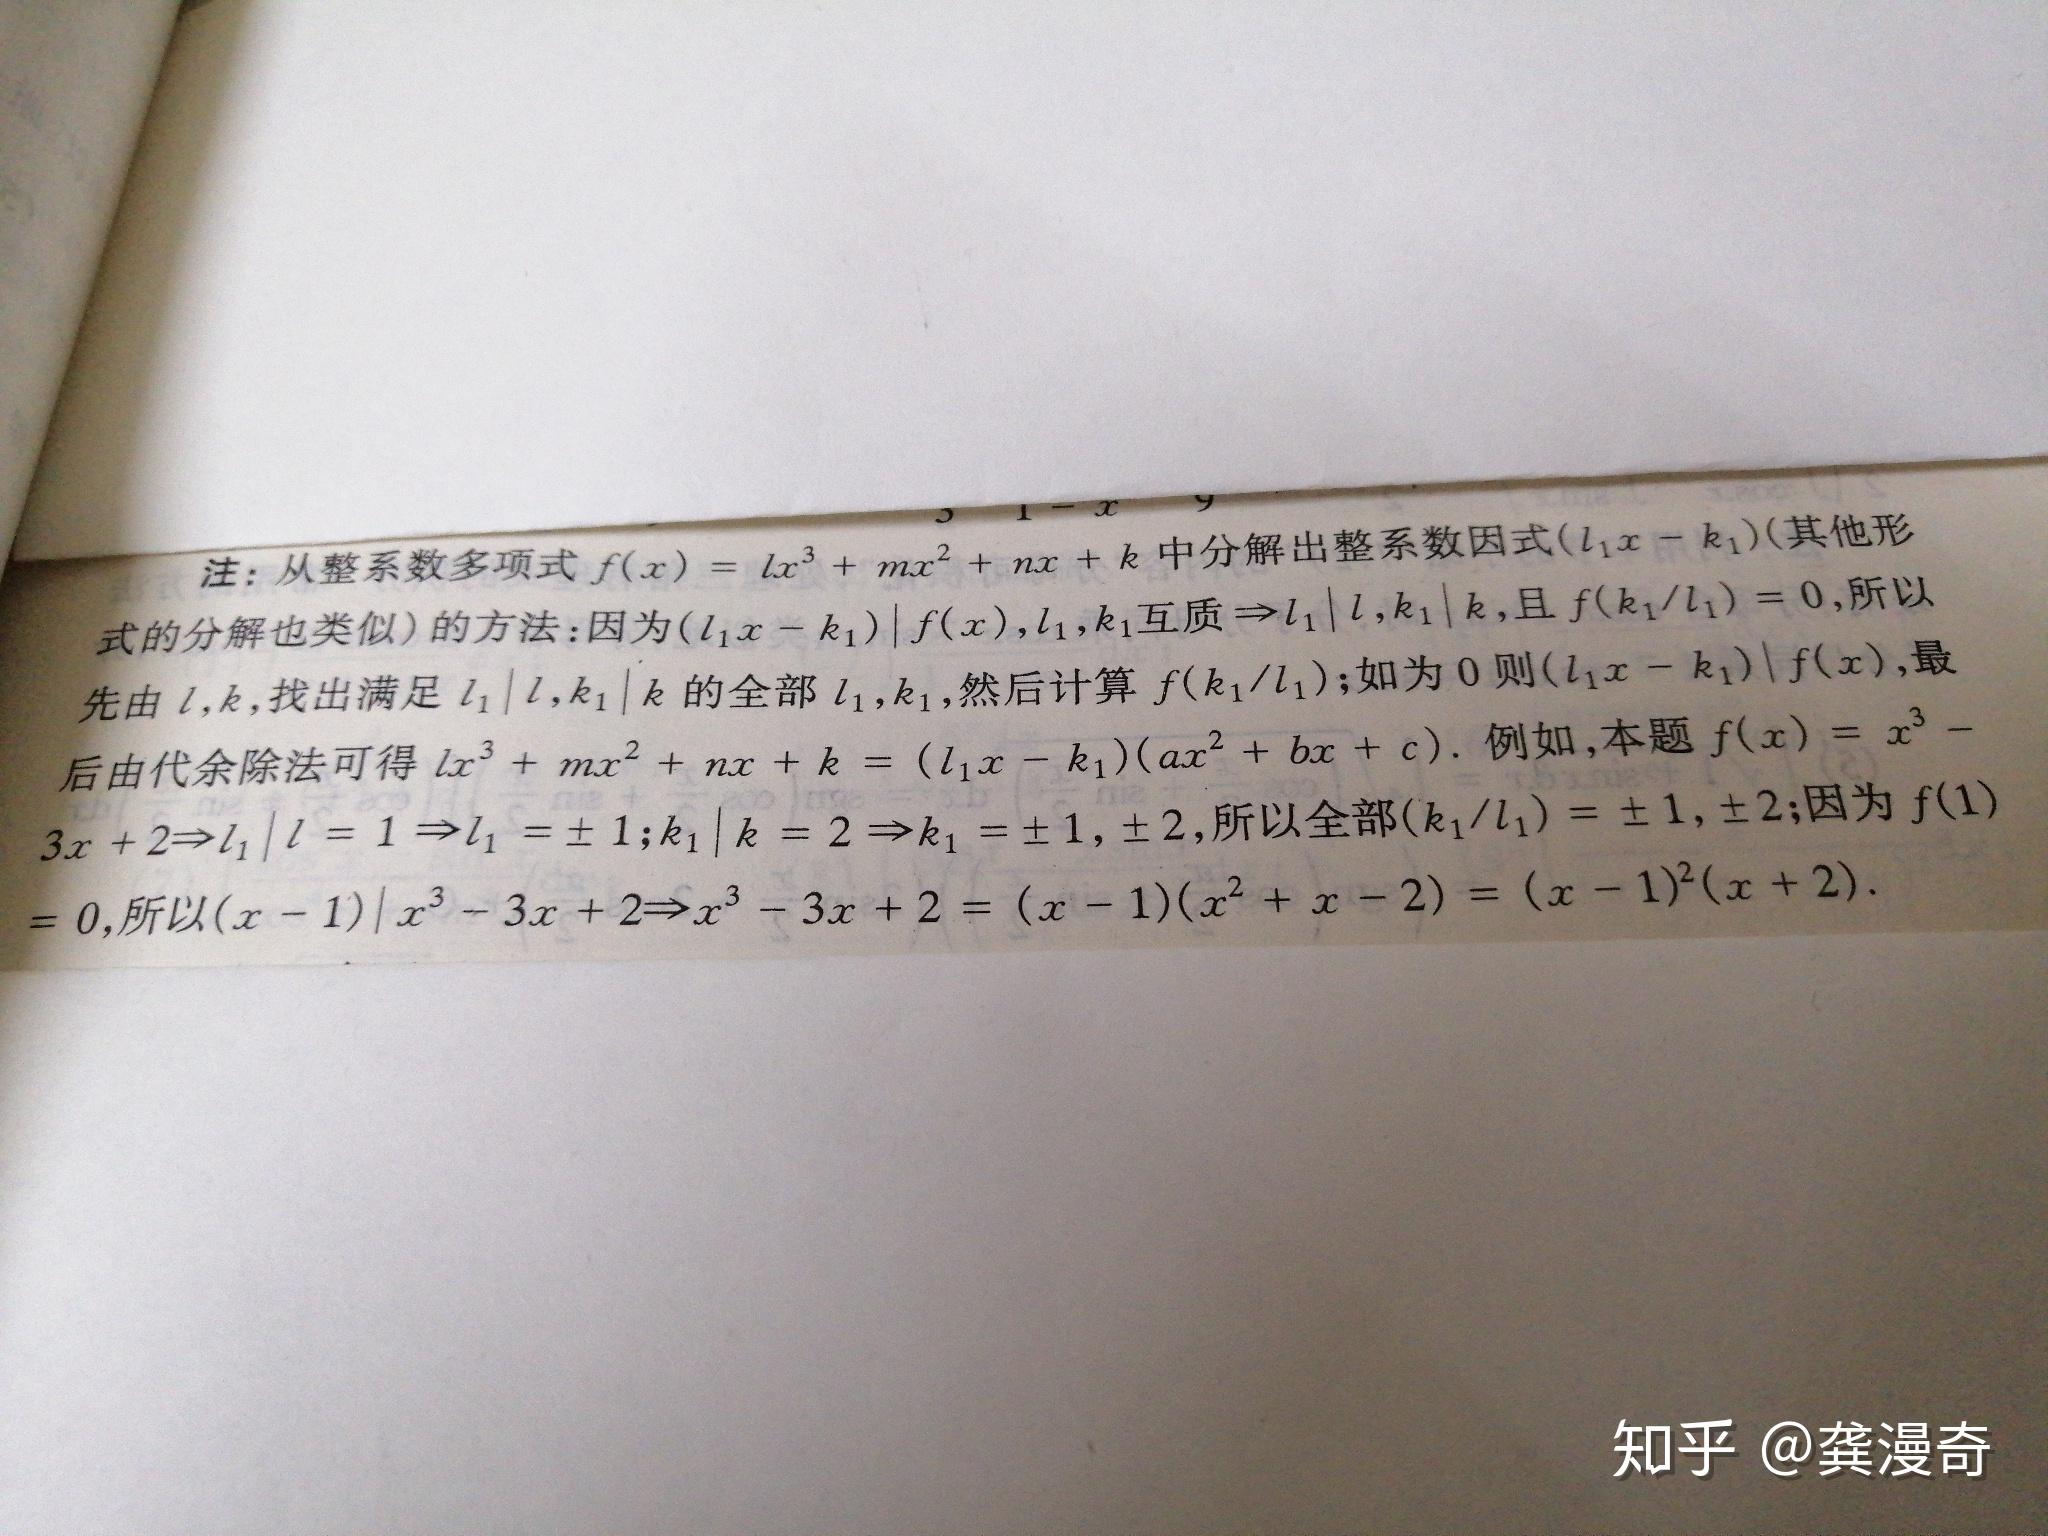 3 1-x 9
注: 从整系数多项式 f(x) = lx³ + mx² + nx + k 中分解出整系数因式(l₁x - k₁)(其他形
式的分解也类似)的方法:因为(l₁x - k₁)|f(x),l₁,k₁互质⇒l₁|l,k₁|k,且 f(k₁/l₁) = 0,所以
先由 l,k,找出满足 l₁|l,k₁|k 的全部 l₁,k₁,然后计算 f(k₁/l₁);如为 0 则(l₁x - k₁)\f(x),最
后由代余除法可得 lx³ + mx² + nx + k = (l₁x - k₁)(ax² + bx + c). 例如,本题 f(x) = x³ -
3x + 2⇒l₁|l = 1 ⇒l₁ = ± 1;k₁|k = 2 ⇒k₁ = ± 1, ± 2,所以全部(k₁/l₁) = ± 1, ± 2;因为 f(1)
= 0,所以(x - 1)|x³ - 3x + 2⇒x³ - 3x + 2 = (x - 1)(x² + x - 2) = (x - 1)²(x + 2).
知乎 @龚漫奇